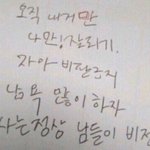 오직 내거만
나만! 잘되기.
자아 비판금지
남 욕 많이 하자
사는정상 남들이 비정